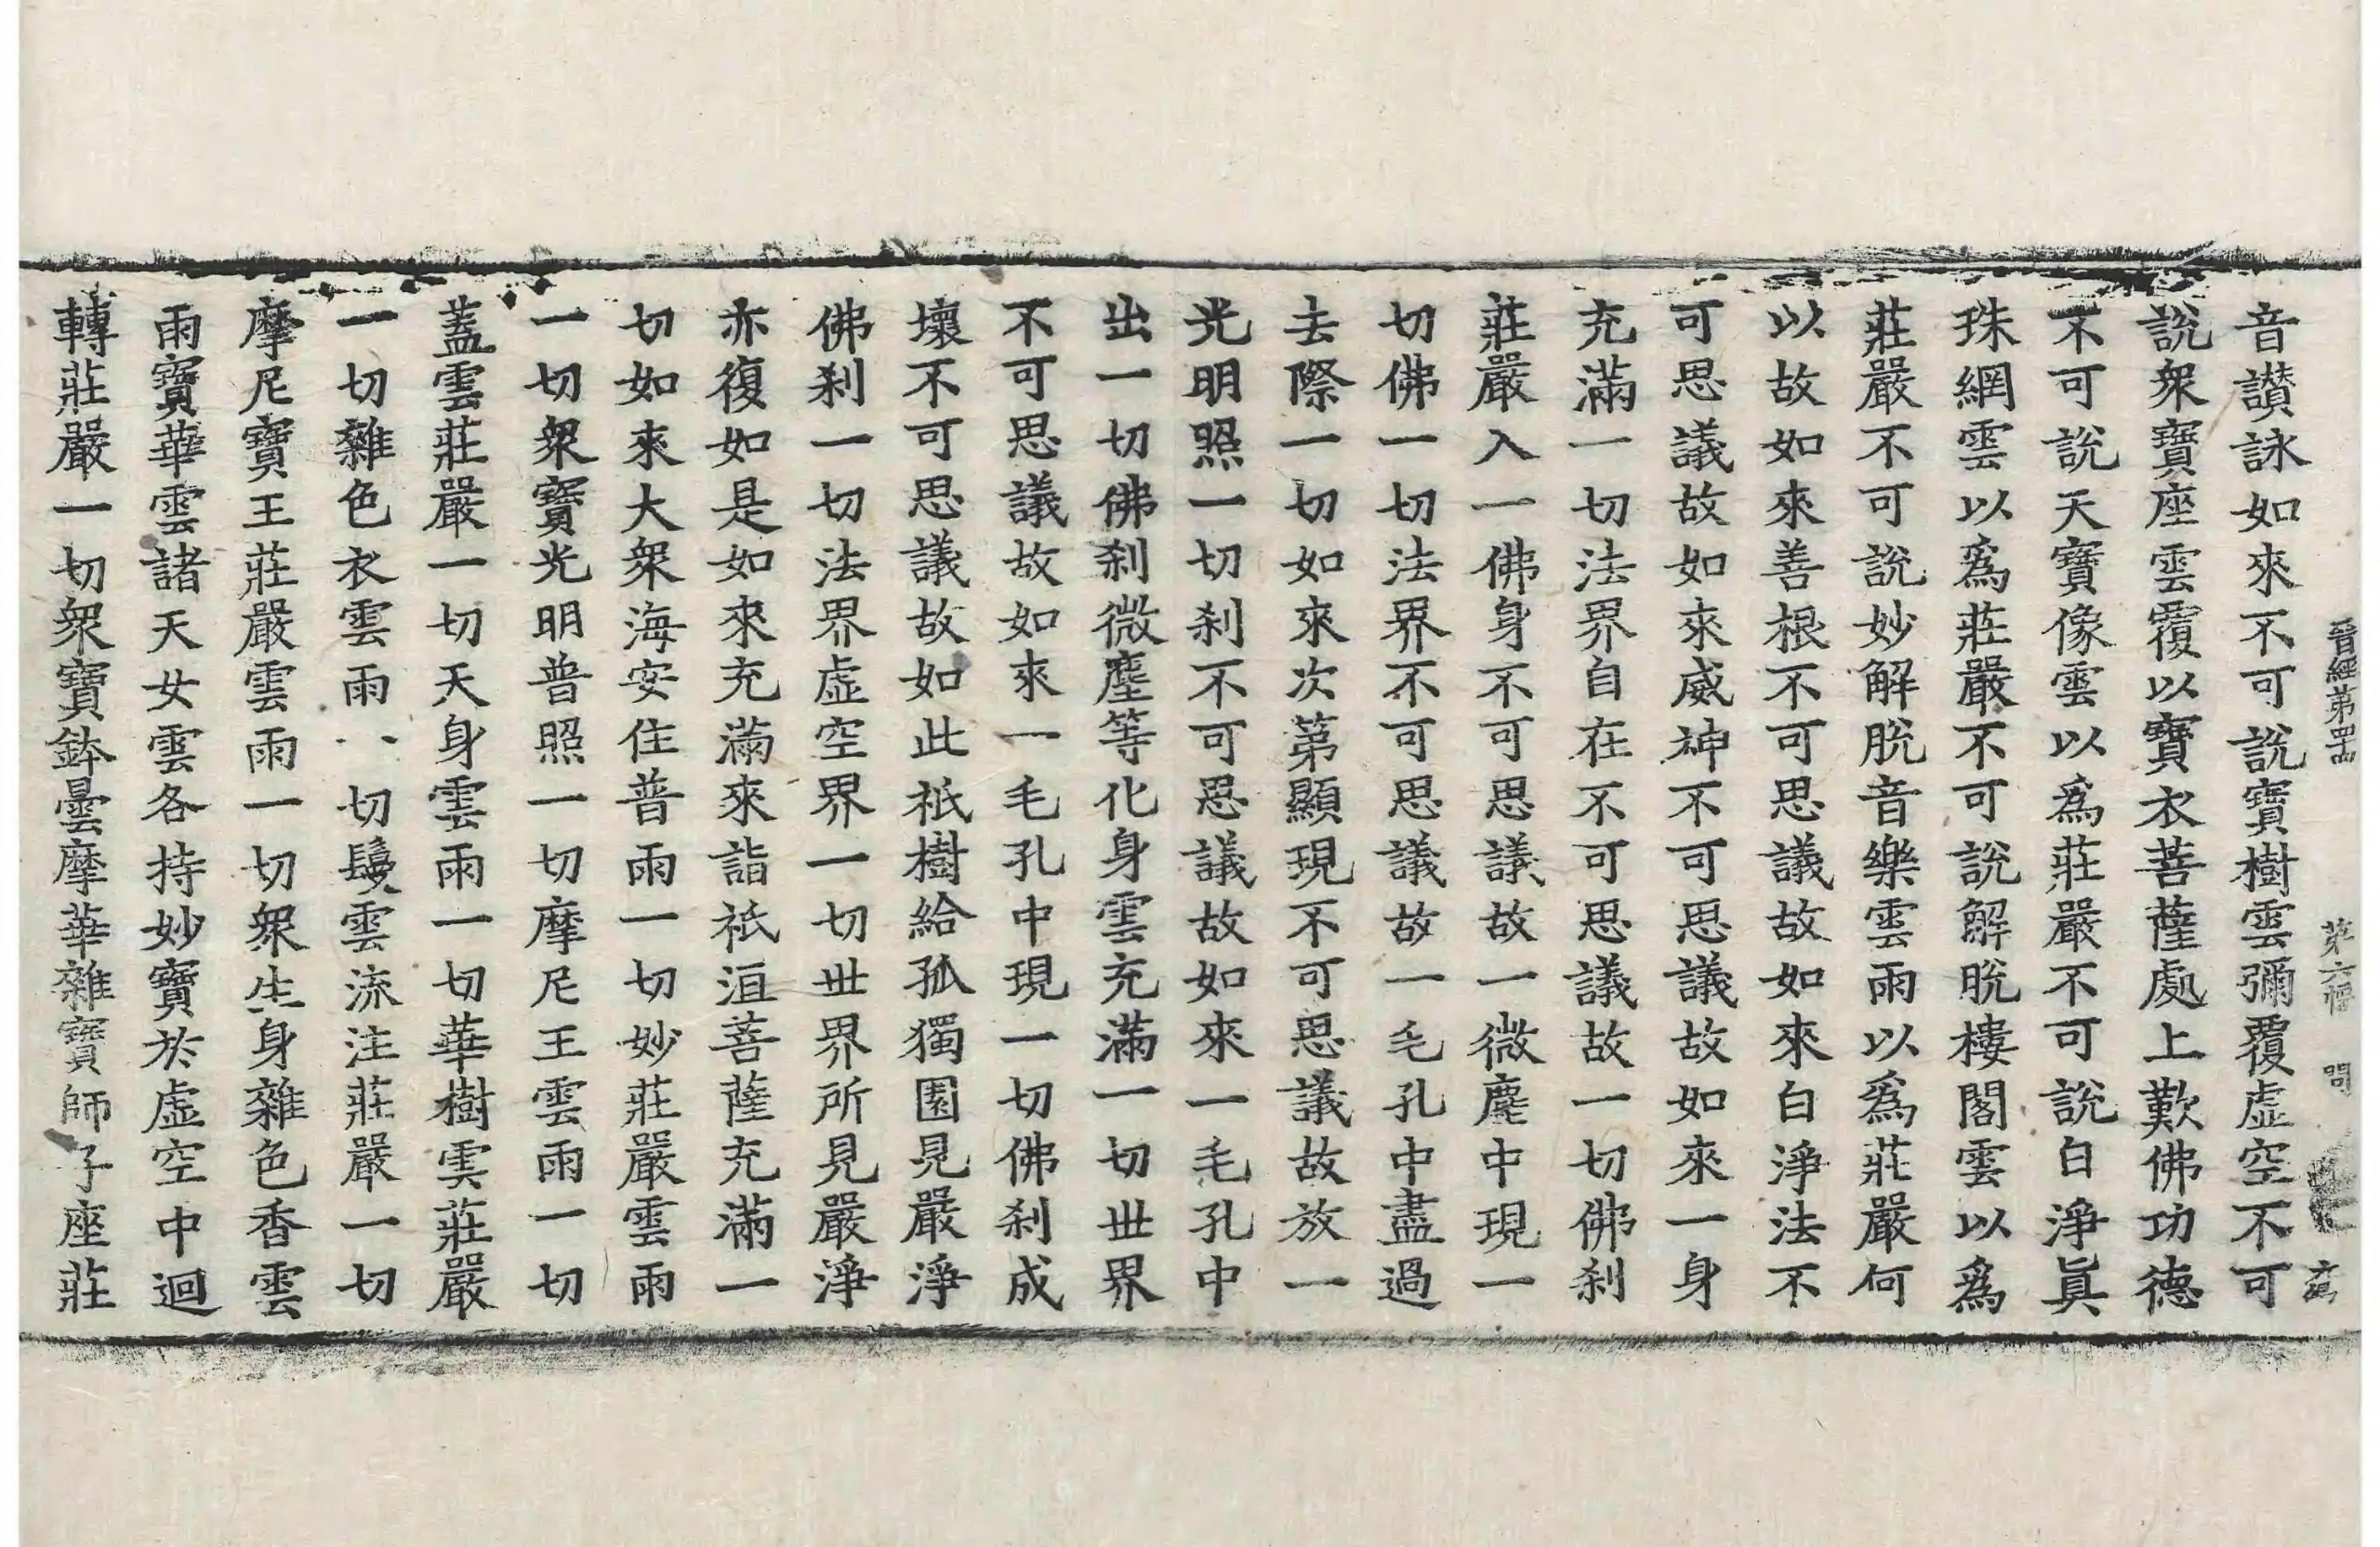 晉經第四十四　第六幅　問
音讃詠如來不可說寶樹雲彌覆虛空不可
說衆寶座雲覆以寶衣菩薩處上歎佛功德
不可說天寶像雲以爲莊嚴不可說白淨眞
珠網雲以爲莊嚴不可說解脫樓閣雲以爲
莊嚴不可說妙解脫音樂雲雨以爲莊嚴何
以故如來善根不可思議故如來白淨法不
可思議故如來威神不可思議故如來一身
充滿一切法界自在不可思議故一切佛刹
莊嚴入一佛身不可思議故一微塵中現一
切佛一切法界不可思議故一毛孔中盡過
去際一切如來次第顯現不可思議故放一
光明照一切刹不可思議故如來一毛孔中
出一切佛刹微塵等化身雲充滿一切世界
不可思議故如來一毛孔中現一切佛刹成
壞不可思議故如此祇樹給孤獨園見嚴淨
佛刹一切法界虛空界一切世界所見嚴淨
亦復如是如來充滿來詣祇洹菩薩充滿一
切如來大衆海安住普雨一切妙莊嚴雲雨
一切衆寶光明普照一切摩尼王雲雨一切
蓋雲莊嚴一切天身雲雨一切華樹雲莊嚴
一切雜色衣雲雨一切鬘雲流注莊嚴一切
摩尼寶王莊嚴雲雨一切衆生身雜色香雲
雨寶華雲諸天女雲各持妙寶於虛空中迴
轉莊嚴一切衆寶鉢曇摩華雜寶師子座莊